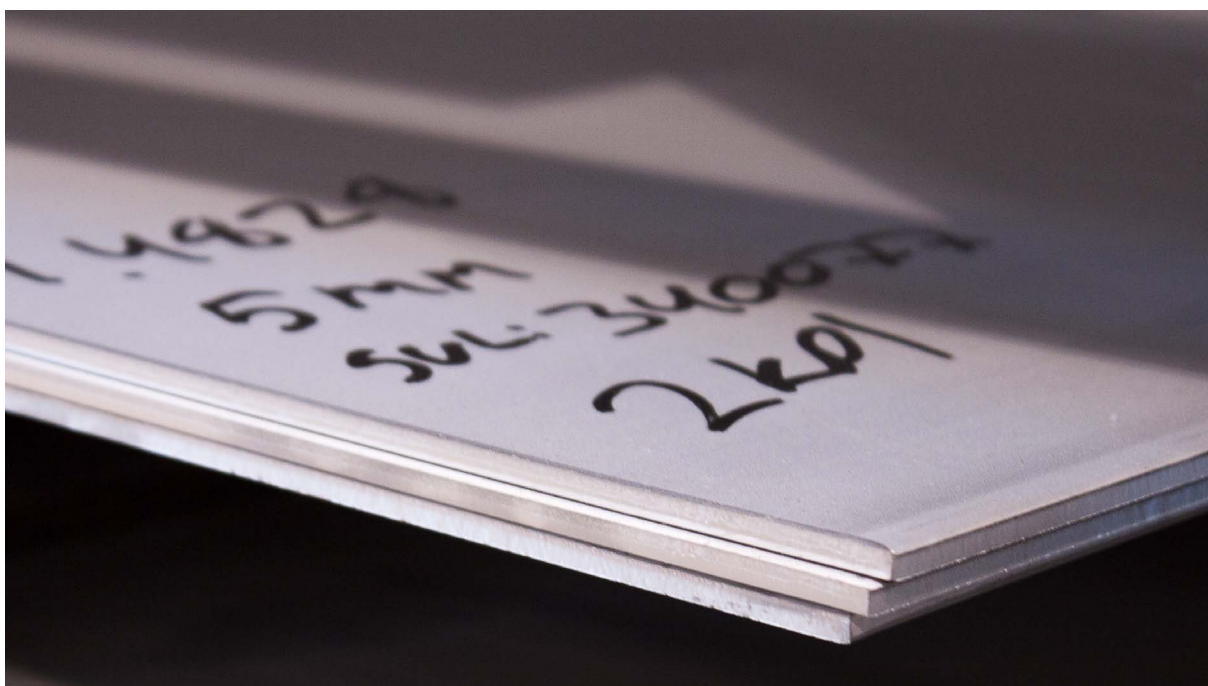 1.4828
5 mm
SUL: 340077
2 kpl